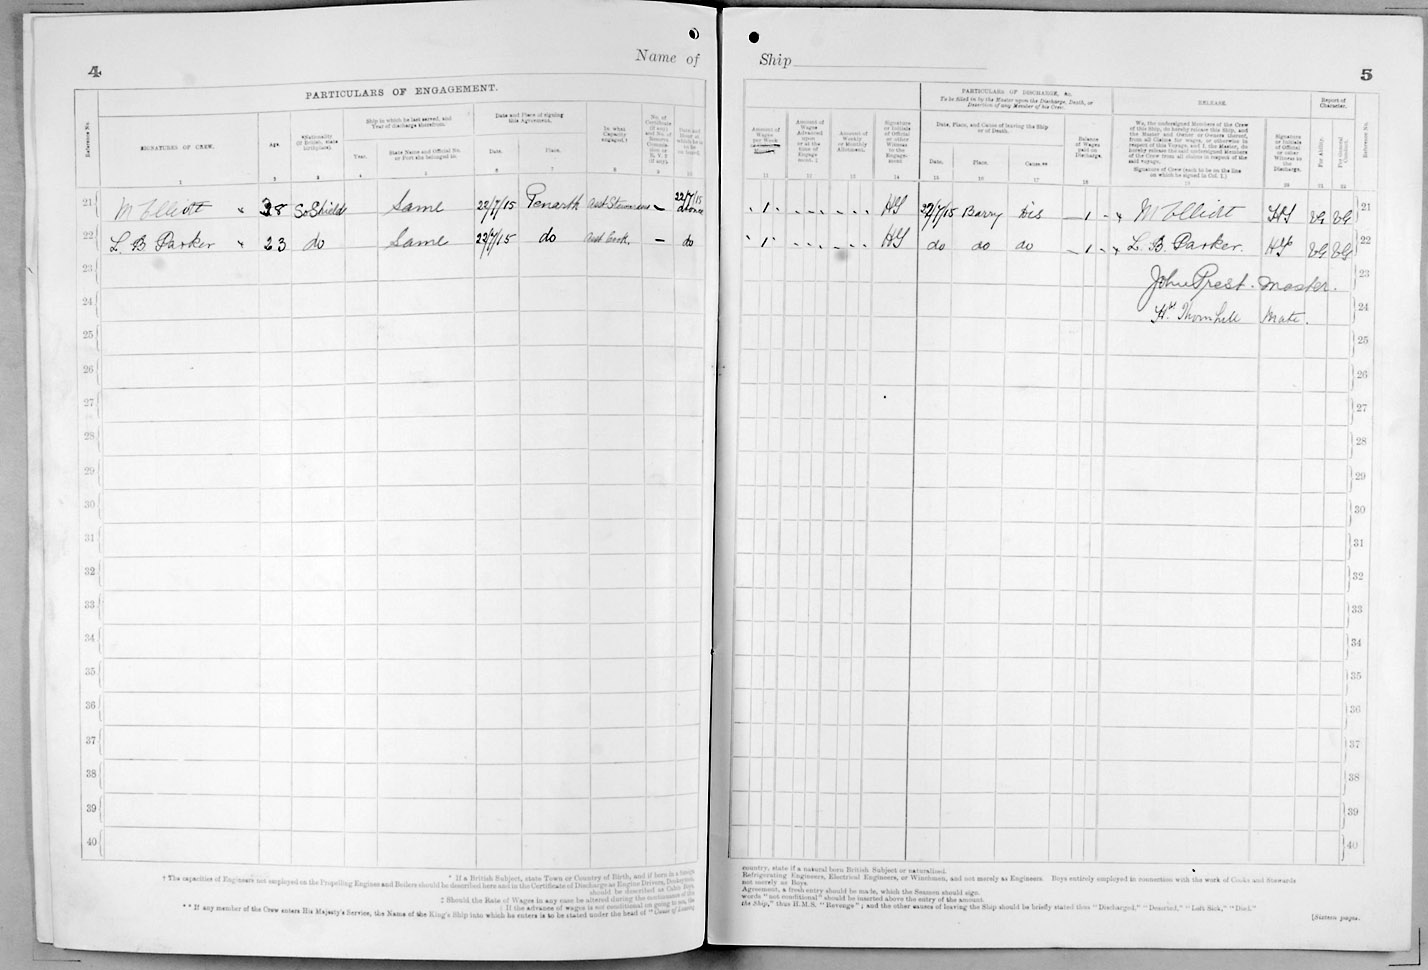 4
Name of
PARTICULARS OF ENGAGEMENT.
Reference No.
SIGNATURES OF CREW.
Age.
*Nationality (If British, state birthplace).
Ship in which he last served, and Year of discharge therefrom.
Year.
State Name and Official No. or Port she belonged to.
Date and Place of signing this Agreement.
Date.
Place.
In what Capacity engaged.†
1 3 4 6 7 8 9 10
21 M Elliott 38 So Shields Same 22/7/15 Penarth — 22/7/15
22 L. B. Parker 23 do Same 22/7/15 do Asst Cook. — do
23
24
25
26
27
28
29
30
31
32
33
34
35
36
37
38
39
40
* If a British Subject, state Town or Country of Birth, and if born in a foreign
† The capacities of Engineers not employed on the Propelling Engines and Boilers should be described here and in the Certificate of Discharge as Engine Drivers,
should be described as
‡ Should the Rate of Wages in any case be altered during the
| If the advance of wages is not conditional on going to sea, the
** If any member of the Crew enters His Majesty's Service, the Name of the King's Ship into which he enters is to be stated under the head of "Cause of Leaving
Ship
5
PARTICULARS OF DISCHARGE, &c.
To be filled in by the Master upon the Discharge, Death, or Desertion of any Member of his Crew.
RELEASE.
Report of Character.
Amount of Wages per Week
Amount of Wages Advanced upon or at the time of Engagement. ‡
Amount of Weekly or Monthly Allotment.
Signature or Initials of Official or other Witness to the Engagement
Date, Place, and Cause of leaving the Ship or of Death.
Date.
Place.
Cause.**
Balance of Wages paid on Discharge.
We, the undersigned Members of the Crew of this Ship, do hereby release this Ship, and the Master and Owner or Owners thereof, from all Claims for wages, or otherwise in respect of this Voyage, and I, the Master, do hereby release the said undersigned Members of the Crew from all claims in respect of the said voyage.
Signature of Crew (each to be on the line on which he signed in Col. 1.)
Signature or Initials of Official or other Witness to the Discharge.
For Ability.
For General Conduct.
Reference No.
11 12 13 14 15 16 17 18 19 20 21 22
1 22/7/15 Barry Dis 1 M Elliott VG VG 21
1 do do do 1 L. B. Parker. VG VG 22
John Prest. Master. 23
Hy. Thornhill Mate. 24
25
26
27
28
29
30
31
32
33
34
35
36
37
38
39
40
country, state if a natural born British Subject or naturalised.
Refrigerating Engineers, Electrical Engineers, or Winchmen, and not merely as Engineers. Boys entirely employed in connection with the work of Cooks and Stewards
not merely as Boys.
Agreement, a fresh entry should be made, which the Seamen should sign.
words "not conditional" should be inserted above the entry of the amount.
the Ship," thus H.M.S. "Revenge"; and the other causes of leaving the Ship should be briefly stated thus "Discharged," "Deserted," "Left Sick," "Died."
[Sixteen pages.